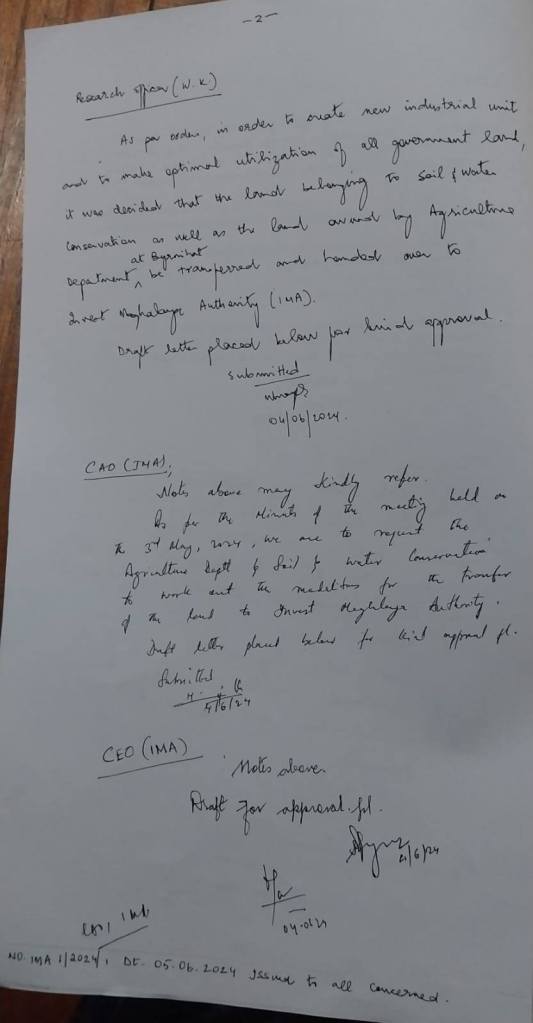 -2-
Research Officer (W.K)
As per order, in order to create new industrial unit
and to make optimal utilization of all government land,
it was decided that the land belonging to Soil & Water
Conservation as well as the land owned by Agriculture
at Byrnihat
Department, be transferred and handed over to
Invest Meghalaya Authority (IMA).
Draft letter placed below for kind approval.
Submitted
04/06/2024.
CAO (IMA),
Notes above may kindly refer.
As per the Minutes of the meeting held on
the 3rd May, 2024, we are to request the
Agriculture Deptt & Soil & Water Conservation
to work out the modalities for the transfer
of the land to Invest Meghalaya Authority.
Draft letter placed below for kind approval pl.
Submitted
4/6/24
CEO (IMA)
Notes above.
Draft for approval pl.
4/6/24
NO. IMA 1/2024/1 Dt. 05.06.2024 Issued to all concerned.